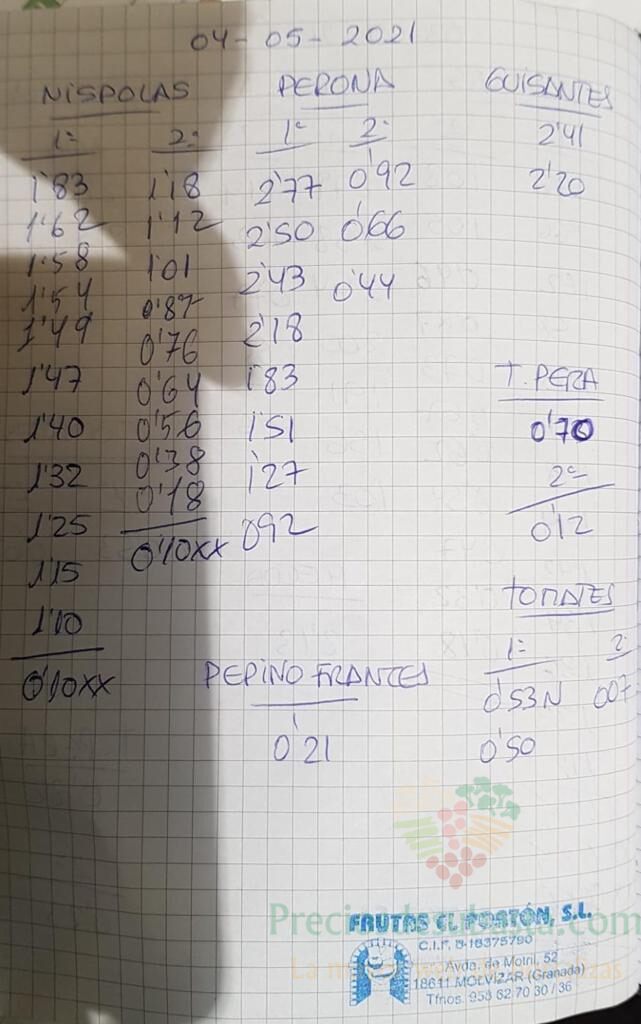 04-05-2021
NISPOLAS
1ª
1'83
1'62
1'58
1'54
1'49
1'47
1'40
1'32
1'25
1'15
1'10
0'10xx
2ª
1'18
1'12
1'01
0'87
0'76
0'64
0'56
0'38
0'18
0'10xx
PERONA
1ª
2'77
2'50
2'43
2'18
1'83
1'51
1'27
092
2ª
0'92
0'66
0'44
GUISANTES
2'41
2'20
T. PERA
0'70
2ª
0'12
TOMATES
1ª
0'53N
0'50
2ª
007
PEPINO FRANCES
0'21
FRUTAS EL PORTÓN, S.L.
C.I.F. B-18375790
Avda. de Motril, 52
18611 MOLVIZAR (Granada)
Tfnos. 958 62 70 30 / 36